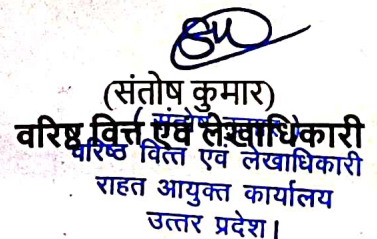 (संतोष कुमार)
( संतोष कुमार )
वरिष्ठ वित्त एवं लेखाधिकारी
वरिष्ठ वित्त एवं लेखाधिकारी
राहत आयुक्त कार्यालय
उत्तर प्रदेश।